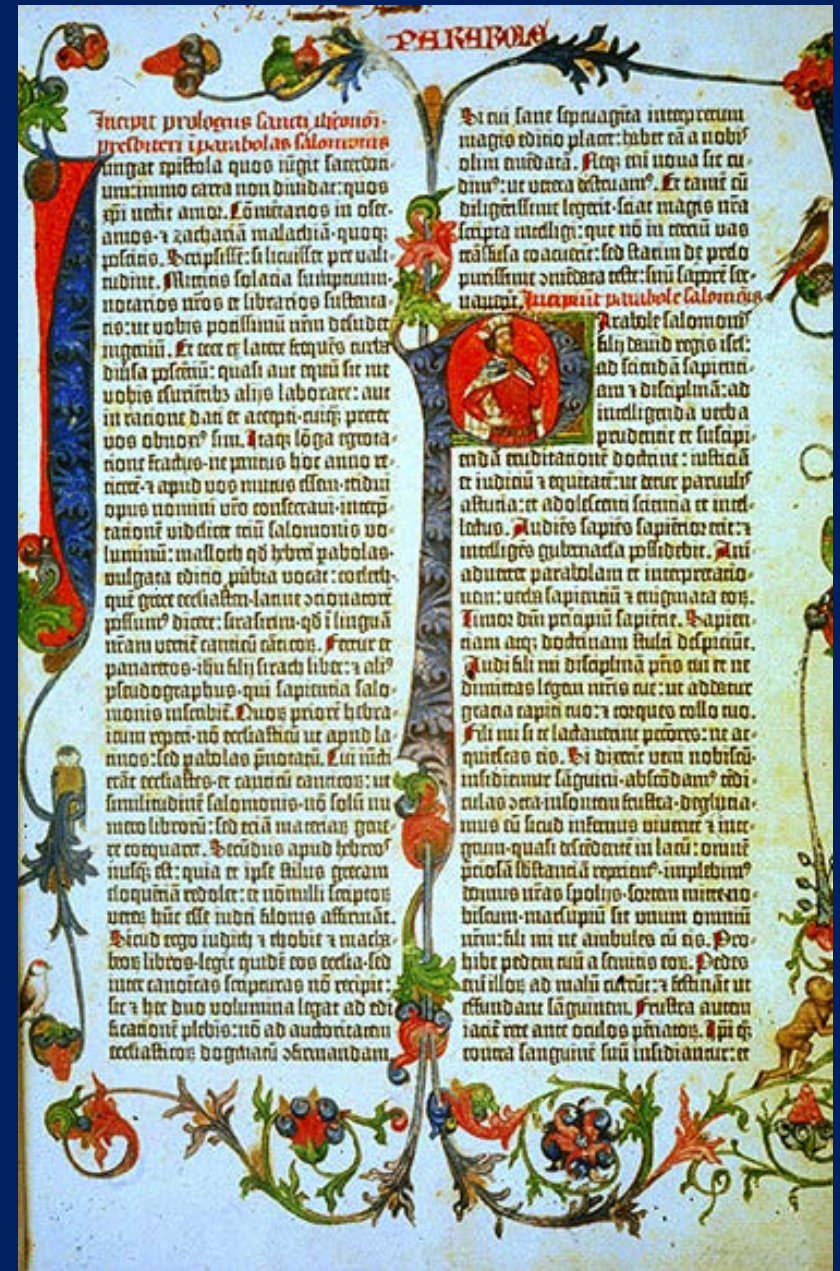 PARABOLE
Incipit prologus sancti iheronimi
presbiteri ī parabolas salomonis
Iungat epistola quos iūgit sacerdoti-
um: immo carta non diuidat: quos
xp̄i nectit amor. Cōmētarios in osee-
amos· ⁊ zachariā malachiā· quoqꝫ
poscitis. Scripsissē: si licuisset pre vali-
tudine. Mittitis solacia sumptuum·
notarios nr̄os et librarios sustenta-
tis: ut vobis potissimū nr̄m desudet
ingeniū. Et ecce ex latere frequēs turba
diuīsa poscētiū: quasi aut equū sit me
vobis esuriētibꝫ alijs laborare: aut
in ratione dati et accepti· cuiqꝫ preter
vos obnoxiꝰ sim. Itaqꝫ lōga egrota-
tione fractus· ne penitus hoc anno re-
ticerē· ⁊ apud vos mutus essem· tridui
opus nomini vr̄o consecraui· interp̄-
tationē videlicet triū salomonis vo-
luminū: masloth qd̄ hebrei pabolas·
vulgata editio pūbia vocat: coeleth·
quē grece ecclīasten· latine ↄcionatorē
possumꝰ dicere: sirasirim· qd̄ ī linguā
nr̄am vertit̄ canticū cāticoꝝ. Fertur et
panaretos· ihū filij sirach liber: ⁊ aliꝰ
pseudographus· qui sapientia salo-
monis inscribit̄. Quoꝝ priorē hebra-
icum reperi· nō ecclīasticū ut apud la-
tinos: sed pabolas p̄notatū. Cui iūcti
erāt ecclīastes· et canticū canticoꝝ: ut
similitudinē salomonis· nō solū nu-
mero libroꝝ: sed etiā materiaꝝ gene-
re coequaret. Secūdus apud hebreoꝰ
nusqꝫ est: quia et ipse stilus grecam
eloquētiā redolet: et nōnulli scriptoꝝ
veteꝝ hūc esse iudei filonis affirmāt.
Sicud ergo iudith ⁊ thobie ⁊ macha-
beoꝝ libros· legit quidē eos ecclīa· sed
inter canoīcas scripturas nō recipit:
sic ⁊ hec duo volumina legat ad edi-
ficationē plebis: nō ad auctoritatem
ecclīasticoꝝ dogmatū ↄfirmandam.
Si cui sane septuagīta interpretum
magis editio placet: habet eā a nobiꝰ
olim emēdatā. Neqꝫ eni noua sic cu-
dimꝰ: ut vetera destruamꝰ. Et tamē cū
diligētissime legerit· sciat magis nr̄a
scripta intelligi: que nō in terciū vas
trāsfusa coacuerīt: sed statim de prelo
purissime ↄmēdata teste: suū saporē ser-
uauerīt. Incipiūt parabole salomōis
Parabole salomonis
filij dauid regis isrl̄:
ad sciendā sapienti-
am ⁊ disciplinā: ad
intelligenda verba
prudentie et suscipi-
endā eruditationē doctrine: iusticiā
et iudiciū ⁊ equitatē: ut detur paruuliꝰ
astutia: et adolescenti scientia et intel-
lectus. Audiēs sapiēs sapiētior erit: ⁊
intelligēs gubernacla possidebit. Ani-
aduertet parabolam et interpretatio-
nem: verba sapientiū ⁊ enigmata eoꝝ.
Timor dn̄i principiū sapiētie. Sapien-
tiam atqꝫ doctrinam stulti despiciūt.
Audi fili mi disciplinā pr̄is tui et ne
dimittas legem mr̄is tue: ut addatur
gracia capiti tuo: ⁊ torques collo tuo.
Fili mi si te lactauerint pctōres: ne ac-
quiescas eis. Si dixerīt veni nobiscū·
insidiemur sāguini· abscōdamꝰ tēdi-
culas ↄtra insontem frustra· deglutia-
mus eū sicud infernus viuentē ⁊ inte-
grum· quasi descēdentē in lacū: omnē
p̄ciosā substanciā reperiemꝰ· implebimꝰ
domus nr̄as spolijs· sortem mitte no-
biscum· marsupiū sit vnum omniū
nr̄m: fili mi ne ambules cū eis. Pro-
hibe pedem tuū a semitis eoꝝ. Pedes
eni illoꝝ ad malū currūt: ⁊ festināt ut
effundant sāguinem. Frustra autem
iacit̄ rete ante oculos pēnatoꝝ. Ip̄i qꝫ
contra sanguinē suū insidiantur: et